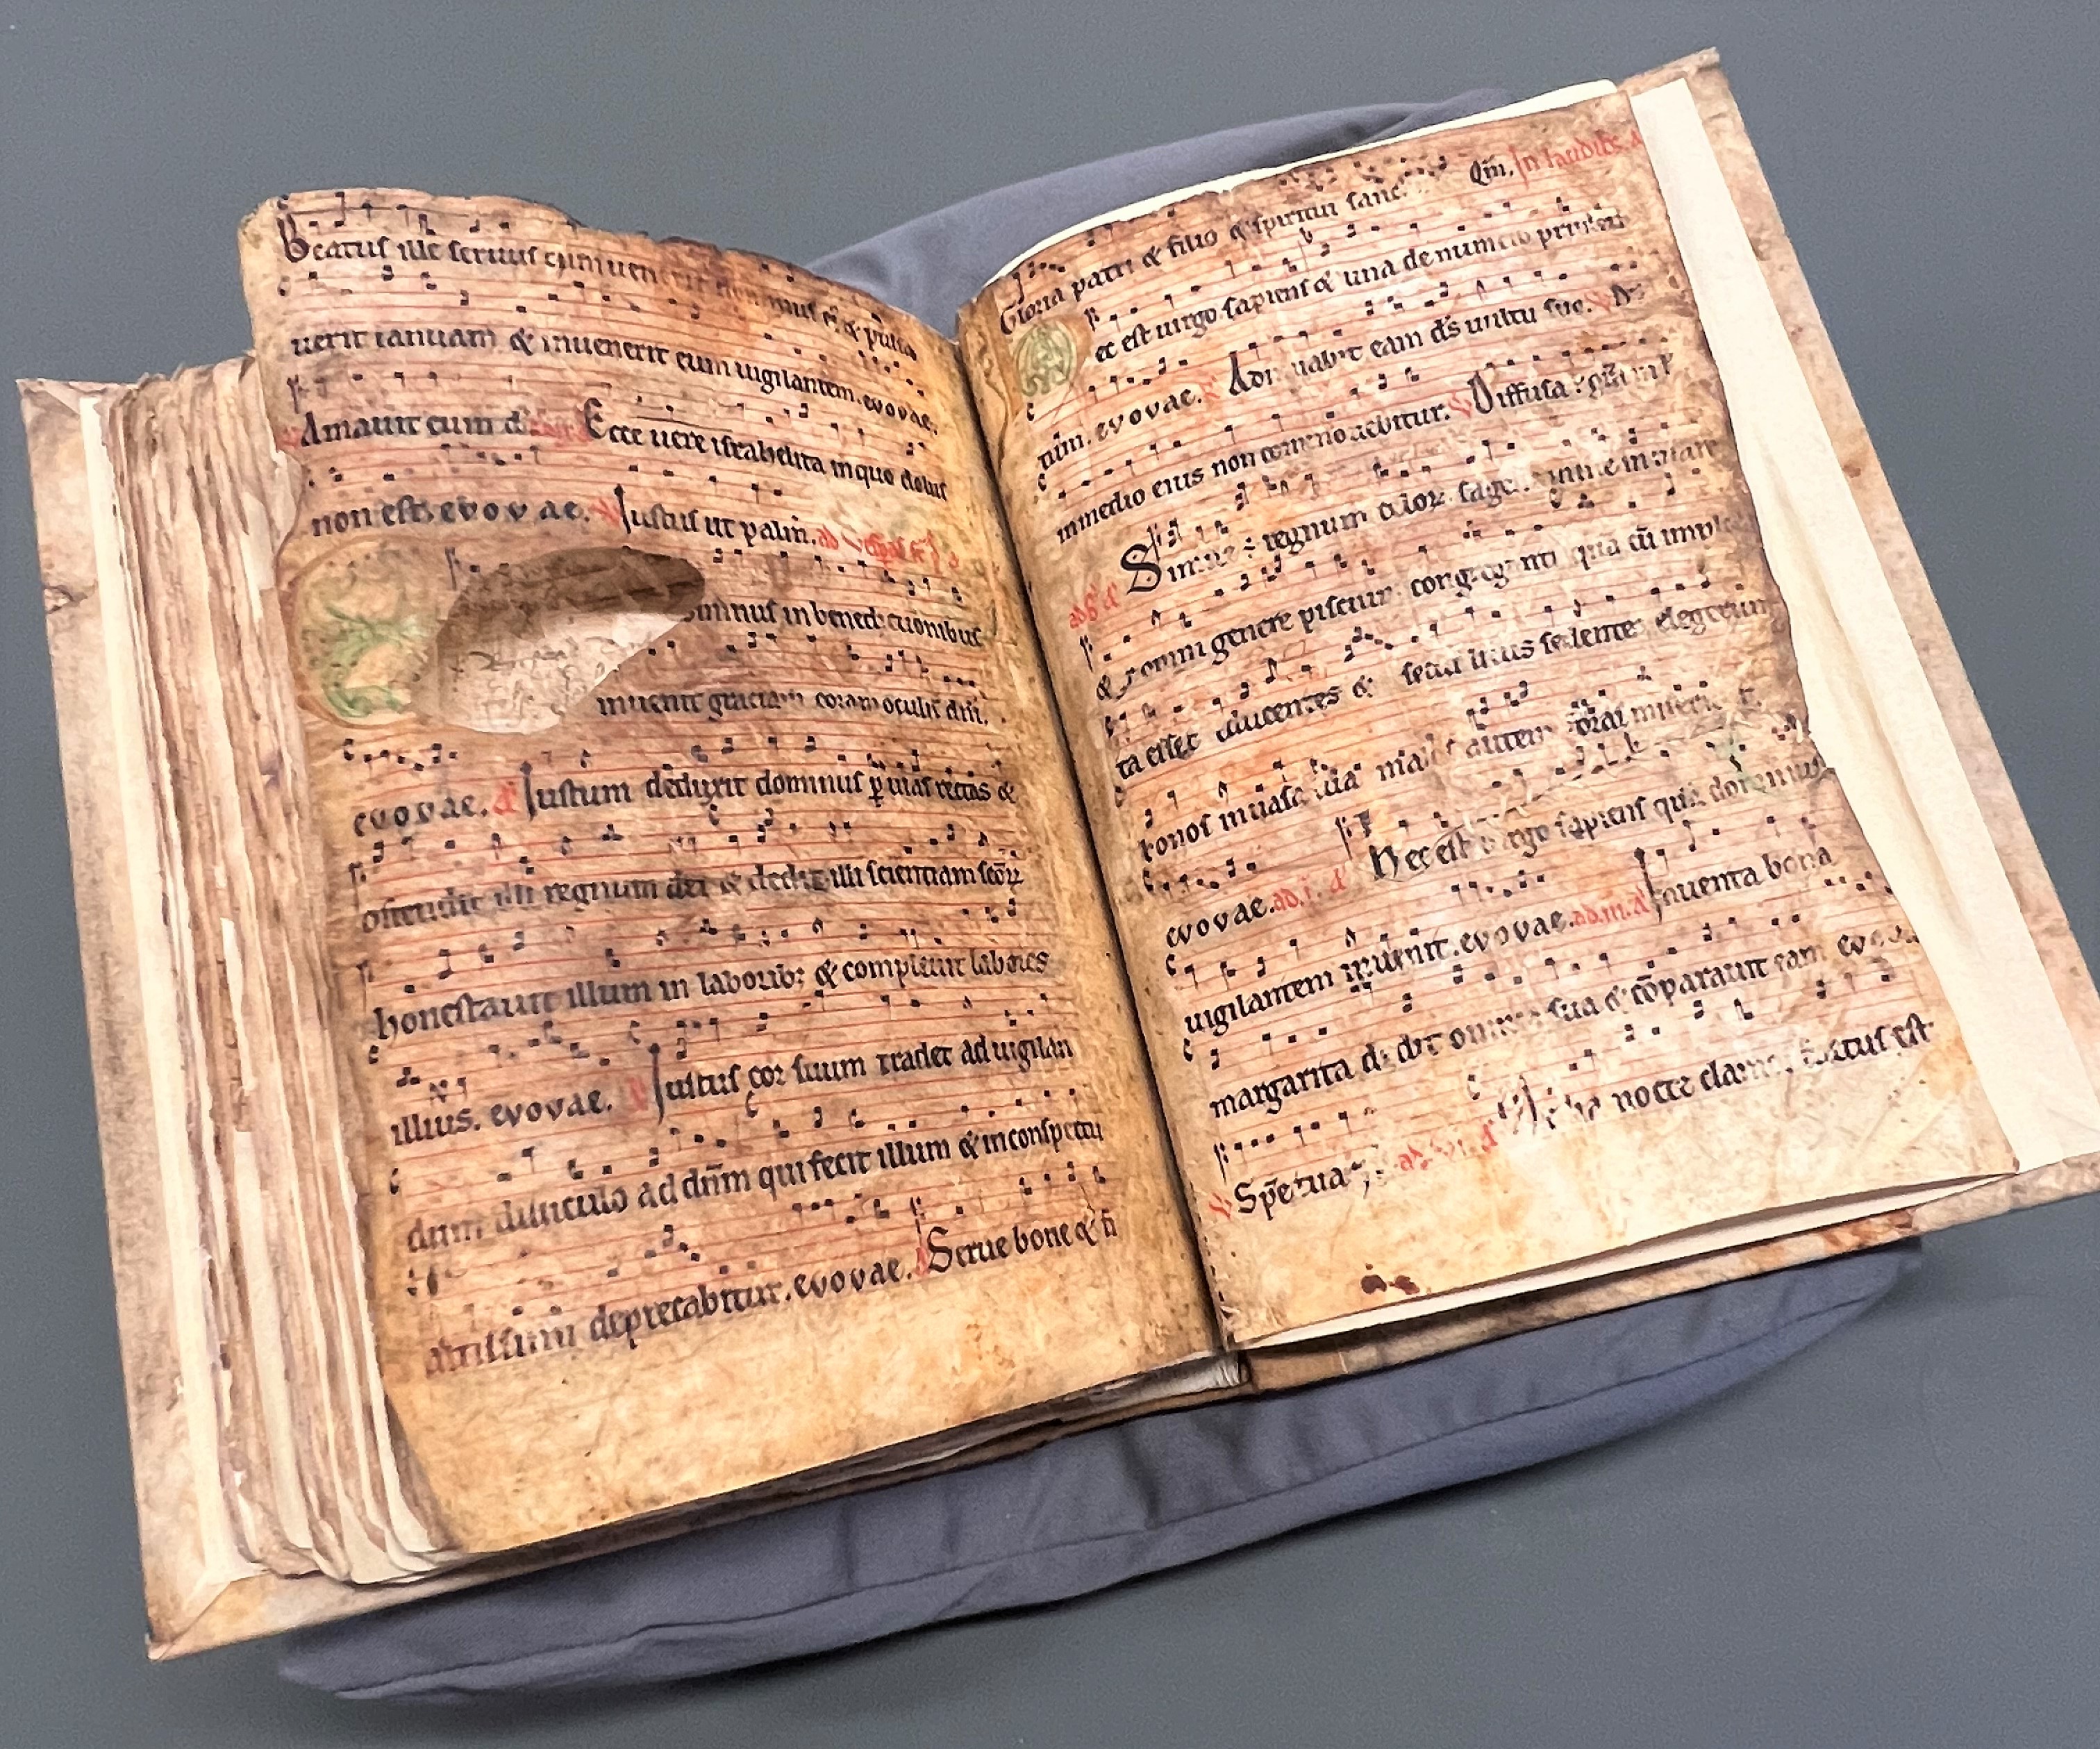 Beatus ille seruus cum uenerit dominus ei & pulsa
uerit ianuam & inuenerit eum uigilantem. evovae.
Amauit eum d Ecce uere israhelita in quo dolus
non est. evovae. Iustus ut palm. ad
ominus in benedictionibus
inuenit graciam coram oculis dni.
evovae. a Iustum deduxit dominus p uias rectas &
ostendit illi regnum dei & dedit illi scientiam scoꝝ
honestauit illum in laborib; & compleuit labores
illius. evovae. Iustus cor suum tradet ad uigilan
dum diluculo ad dnm qui fecit illum & in conspectu
altissimi deprecabitur. evovae. Serue bone & fi
Gloria patri & filio & spiritui sanc Qm. In laudib;. a
ec est uirgo sapiens & una de numero pruden
tum. evovae. Adiuuabit eam ds uultu suo. Ds
in medio eius non commouebitur. Diffusa:
Simile: regnum celoꝝ. sagene misse in mare
& ex omni genere pisciu congreganti que cu imple
ta esset educentes & secus litus sedentes elegerunt
bonos in uasa sua malos autem foras miserunt.
evovae. ad. i. a Hec est uirgo sapiens qua dominus
uigilantem inuenit. evovae. ad. iii. a Inuenta bona
margarita dedit omnia sua & coparauit eam evovae
Specie tua ad. vi. a nocte clamor factus est